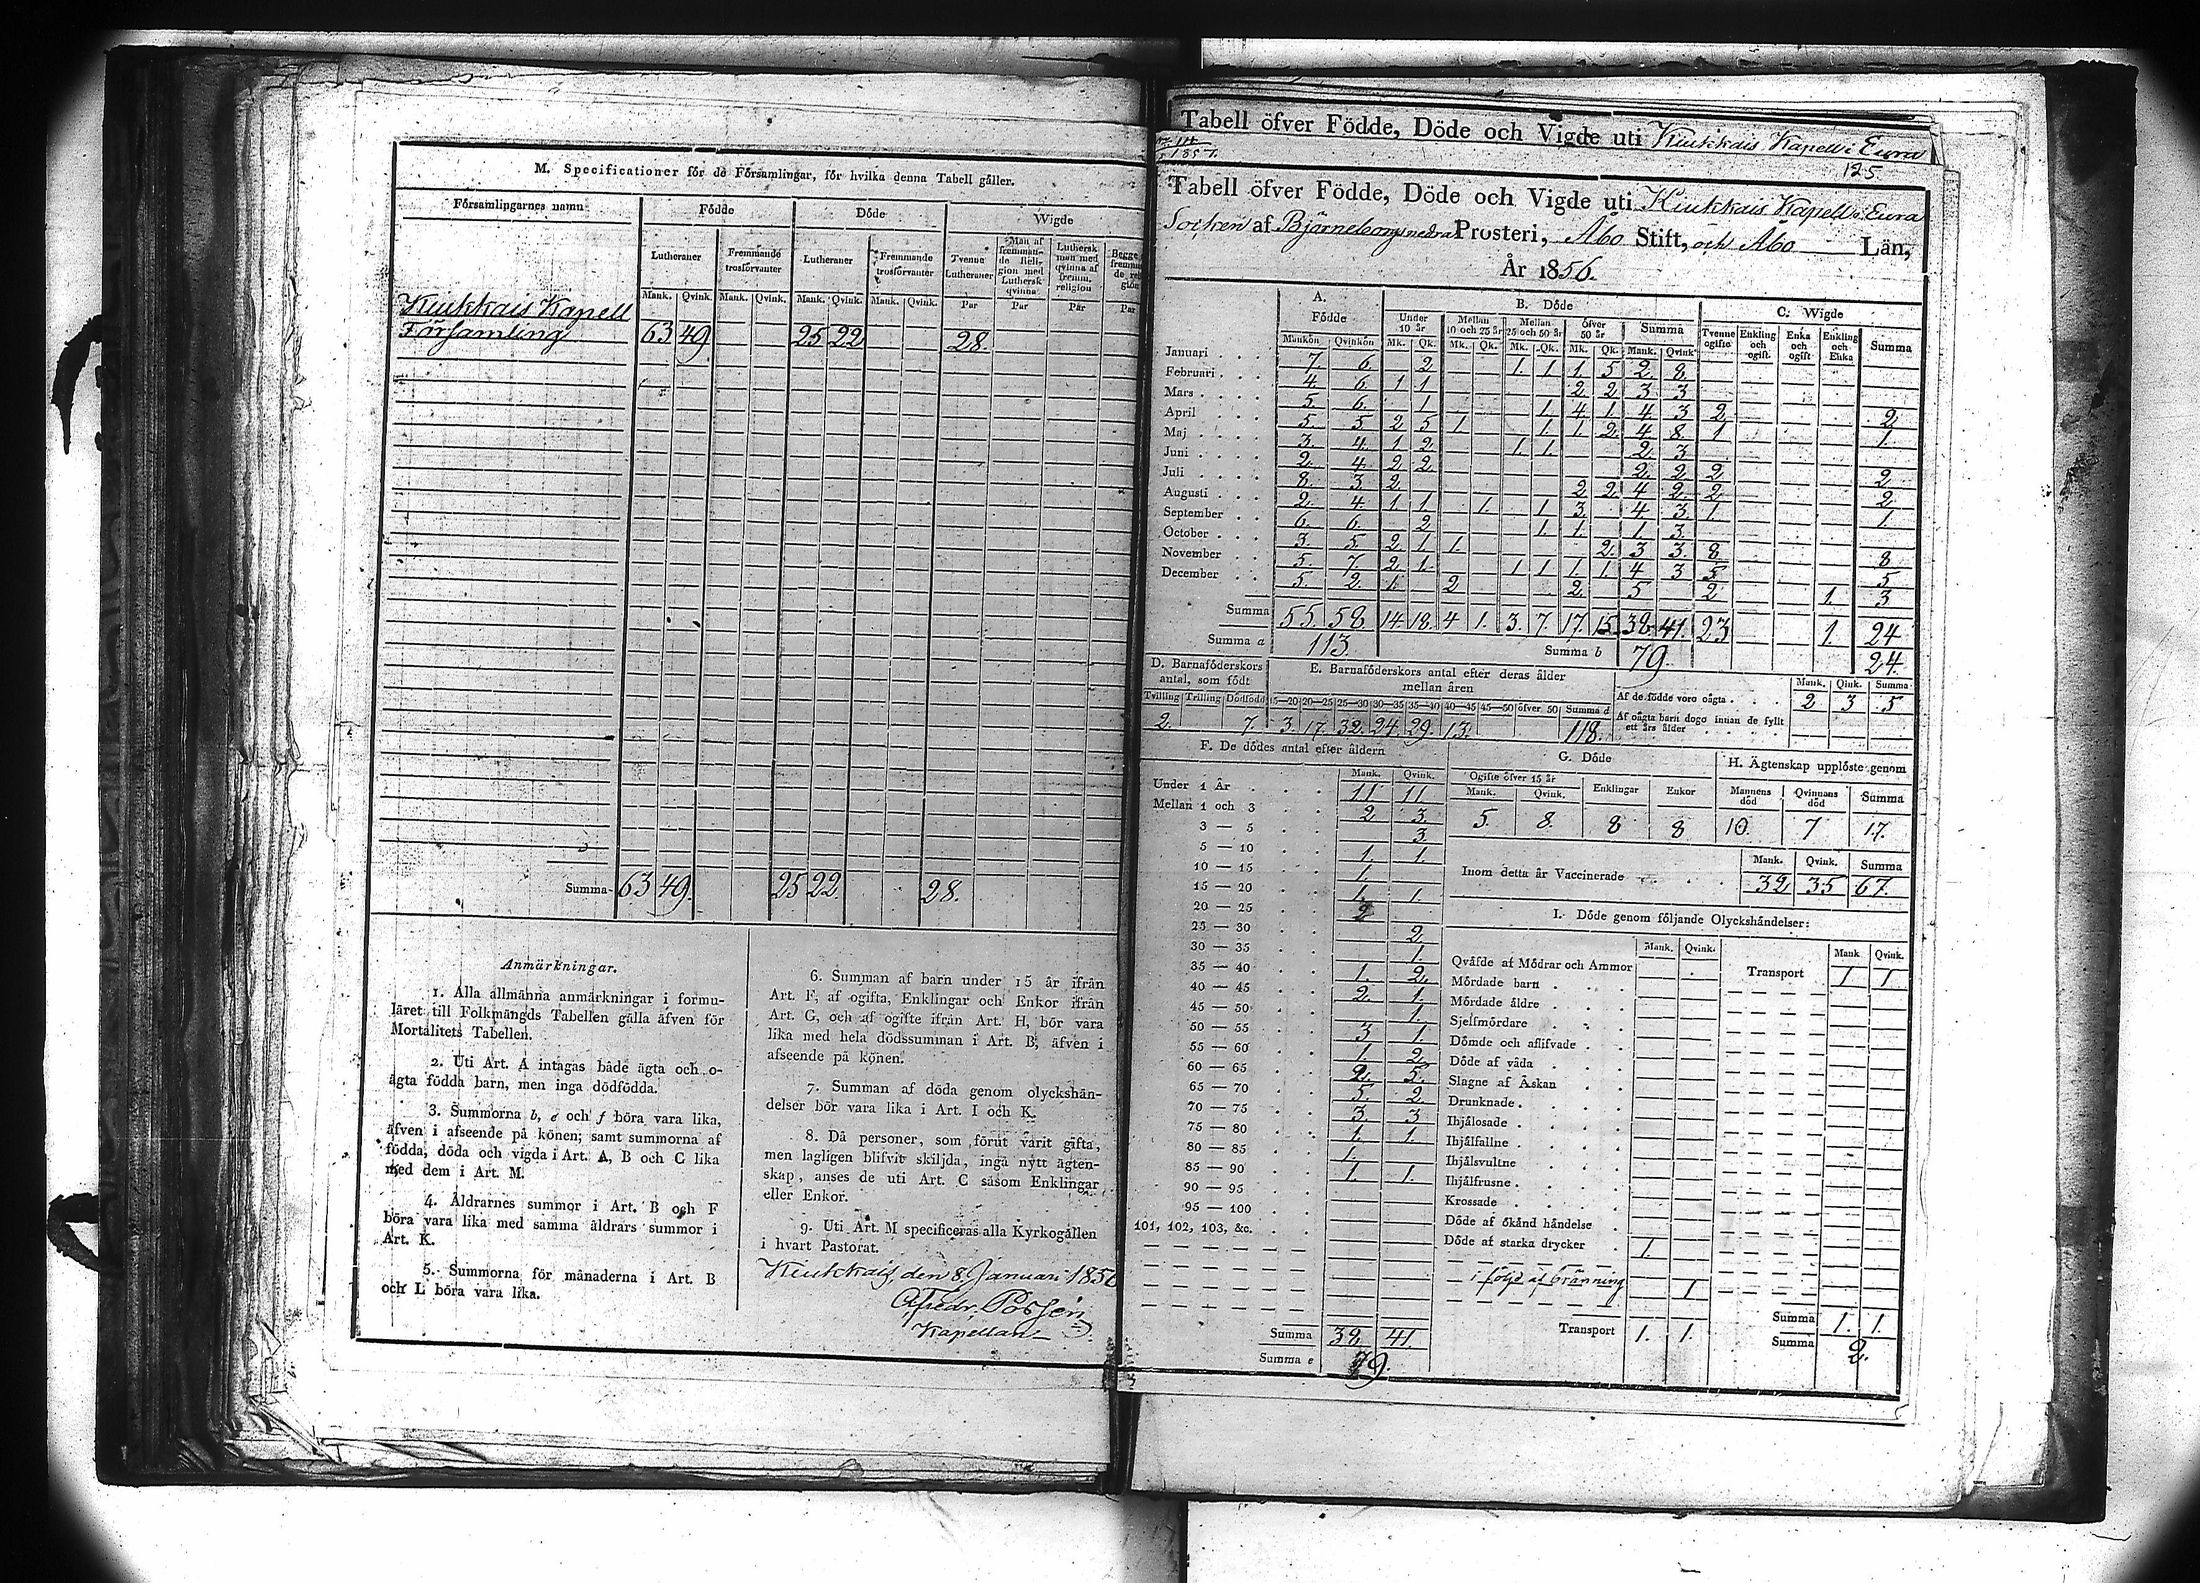 M. Specificationer för de Församlingar, för hvilka denna Tabell gäller.
Församlingarnes namn Födde Döde Wigde
Lutheraner Fremmande trosförvanter Lutheraner Fremmande trosförvanter Tvenne Lutheraner Man af fremmande Religion med Luthersk qvinna Luthersk man med qvinna af fremm. religion
Mank. Qvink. Mank. Qvink. Mank. Qvink. Mank. Qvink. Par Par Par Par
Kiukkais Kapell
Församling 63 49. 25 22 28.
Summa 63 49. 25 22. 28.
Anmärkningar.
1. Alla allmänna anmärkningar i formu-
läret till Folkmängds Tabellen gälla äfven för
Mortalitets Tabellen.
2. Uti Art. A intagas både ägta och o-
ägta födda barn, men inga dödfödda.
3. Summorna b, e och f böra vara lika,
äfven i afseende på könen; samt summorna af
födda, döda och vigda i Art. A, B och C lika
med dem i Art. M.
4. Åldrarnes summor i Art. B och F
böra vara lika med samma åldrars summor i
Art. K.
5. Summorna för månaderna i Art. B
och L böra vara lika.
6. Summan af barn under 15 år ifrån
Art. F, af ogifta, Enklingar och Enkor ifrån
Art. G, och af ogifte ifrån Art. H, bör vara
lika med hela dödssumman i Art. B, äfven i
afseende på könen.
7. Summan af döda genom olyckshän-
delser bör vara lika i Art. I och K.
8. Då personer, som förut varit gifta,
men lagligen blifvit skiljda, ingå nytt ägten-
skap, anses de uti Art. C såsom Enklingar
eller Enkor.
9. Uti Art. M specificeras alla Kyrkogällen
i hvart Pastorat.
Kiukkais den 8 Januari 1856
Kapellan
Tabell öfver Födde, Döde och Vigde uti Kiukkais Kapell i Eura
1857.
125.
Tabell öfver Födde, Döde och Vigde uti Kiukkais Kapell i Eura
Socken af Björneborgs nedra Prosteri, Åbo Stift, och Åbo Län,
År 1856.
A. Födde B. Döde C. Wigde
Under 10 år Mellan 10 och 25 år Mellan 25 och 50 år öfver 50 år Summa Tvenne ogifte Enkling och ogift. Enka och ogift Enkling och Enka Summa
Mankön Qvinkön Mk. Qk. Mk. Qk. Mk. Qk. Mk. Qk. Mank. Qvink.
Januari 7. 6. 2 1. 1 1. 5 2 8.
Februari 4. 6. 1 1 2 2 3 3
Mars 5. 6. 1 1 4 1. 4 3 2 2.
April 5. 5 2 5 1. 1 1. 2 4 8. 1 1.
Maj 3. 4. 1 2. 1 1. 2. 3
Juni 2. 4 2 2 2. 2 2 2
Juli 8. 3 2. 2 2 4 2. 2 2.
Augusti 2. 4 1 1 1. 1 3. 4 3 1. 1.
September 6. 6. 2 1. 1. 1. 3.
October 3. 5. 2. 1. 1. 2. 3 3 8 8
November 5. 7. 2 1. 1 1 1. 1. 4 3 5 5
December 5. 2. 1. 2 2. 5 2 1. 3
Summa 55. 58. 14 18. 4 1. 3. 7. 17. 15. 38 41. 23 1. 24
Summa a 113. Summa b 79. 24.
D. Barnaföderskors antal, som födt
Tvilling Trilling Dödfödd
2. 7.
E. Barnaföderskors antal efter deras ålder
mellan åren
15—20 20—25 25—30 30—35 35—40 40—45 45—50 öfver 50 Summa d
3. 17. 32. 24. 29. 13. 118.
Mank. Qink. Summa
Af de födde voro oägta 2 3 5
Af oägta barn dogo innan de fyllt
ett års ålder
F. De dödes antal efter åldern
Mank. Qvink.
Under 1 År 11 11.
Mellan 1 och 3 2 3.
3 — 5 3
5 — 10 1. 1
10 — 15 1.
15 — 20 1. 1.
20 — 25 2
25 — 30 2.
30 — 35 1.
35 — 40 1. 2.
40 — 45 2. 1.
45 — 50 1.
50 — 55 3 1.
55 — 60 1. 2.
60 — 65 2. 5.
65 — 70 5. 2
70 — 75 3 3
75 — 80 1. 1.
80 — 85 1.
85 — 90 1. 1.
90 — 95
95 — 100
101, 102, 103, &c.
Summa 38. 41.
Summa e 79.
G. Döde
Ogifte öfver 15 år Enklingar Enkor
Mank. Qvink.
5. 8. 8 8
H. Ägtenskap upplöste genom
Mannens död Qvinnans död Summa
10. 7 17.
Mank. Qvink. Summa
Inom detta år Vaccinerade 32 35 67.
I. Döde genom följande Olyckshändelser:
Mank. Qvink. Mank Qvink.
Qväfde af Mödrar och Ammor Transport 1 1
Mördade barn
Mördade äldre
Sjelfmördare
Dömde och aflifvade
Döde af våda
Slagne af Åskan
Drunknade
Ihjälosade
Ihjälfallne
Ihjälsvultne
Ihjälfrusne
Krossade
Döde af okänd händelse
Döde af starka drycker 1.
i följd af bränning 1
Transport 1. 1. Summa 1. 1.
Summa 2.